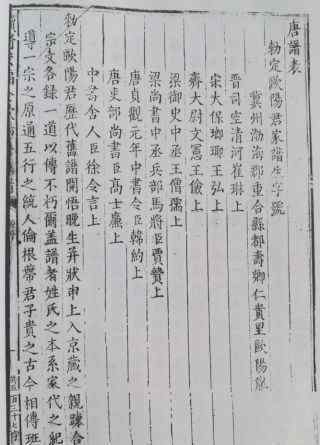 唐譜表
勑定歐陽君家譜生字號
冀州渤海郡重合縣都壽鄉仁貴里歐陽
晉司空清河崔琳上
宋大保瑯琊王弘上
齊大尉文憲王儉上
梁御史中丞王僧孺上
梁尚書中丞兵部馬將臣賈贊上
唐貞觀元年中書令臣韓約上
唐吏部尚書臣高士廉上
中書舍人臣徐令言上
勑定歐陽君歷代舊譜開悟晚生并狀申上入京藏之親踈合
宗文各錄一道以傳不朽爾蓋譜者姓氏之本系家代之紀
導一宗之原通五行之統人倫根蒂君子貴之古今相傳班